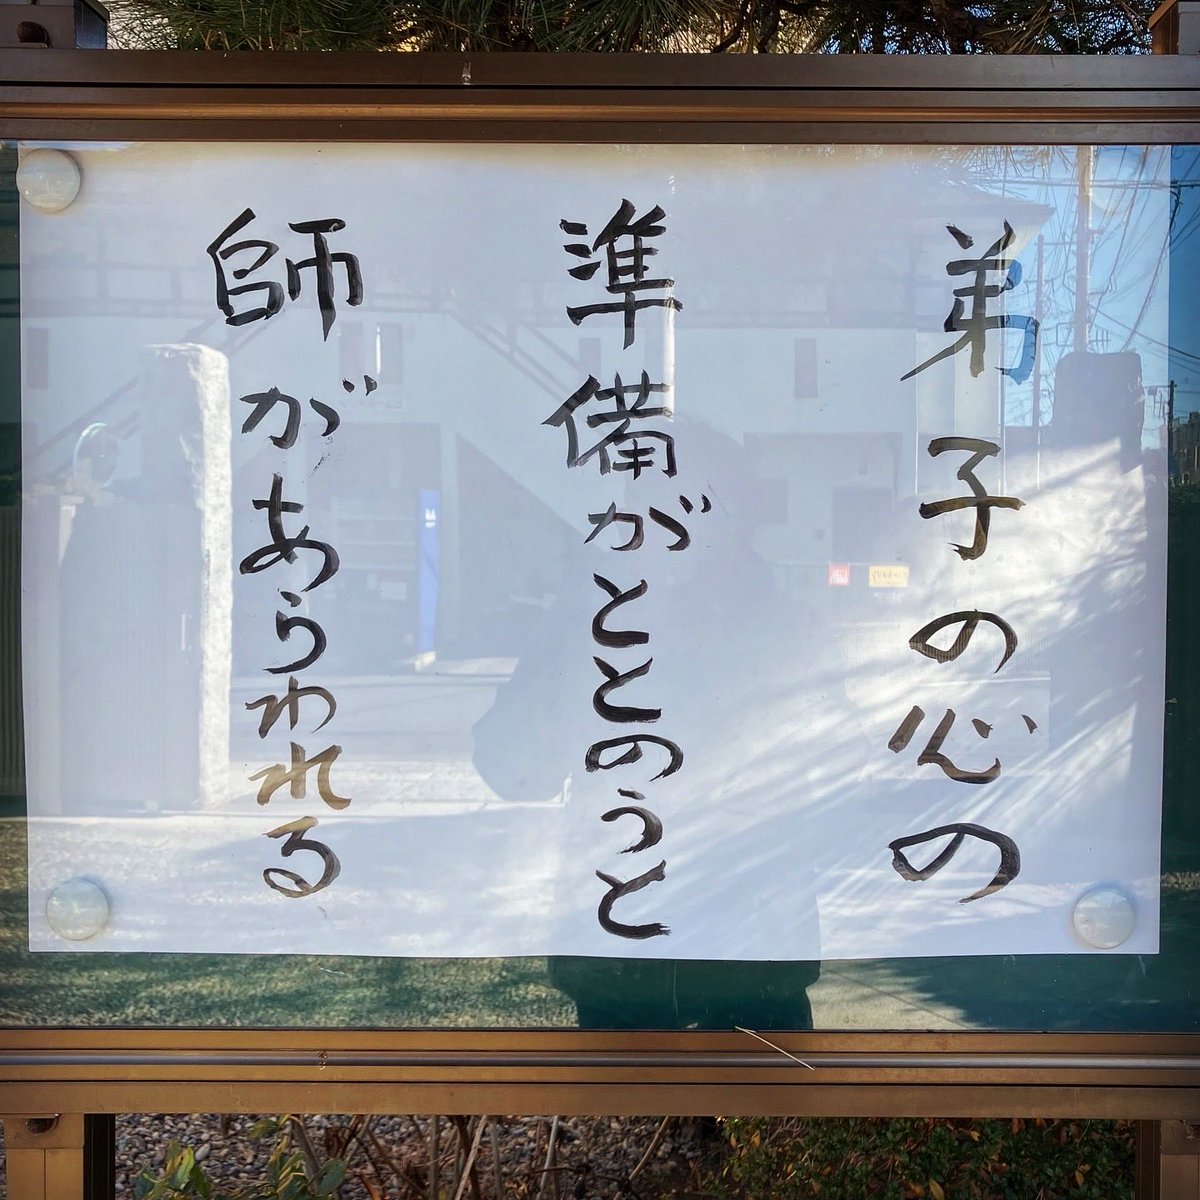 弟子の心の
準備がととのうと
師があらわれる